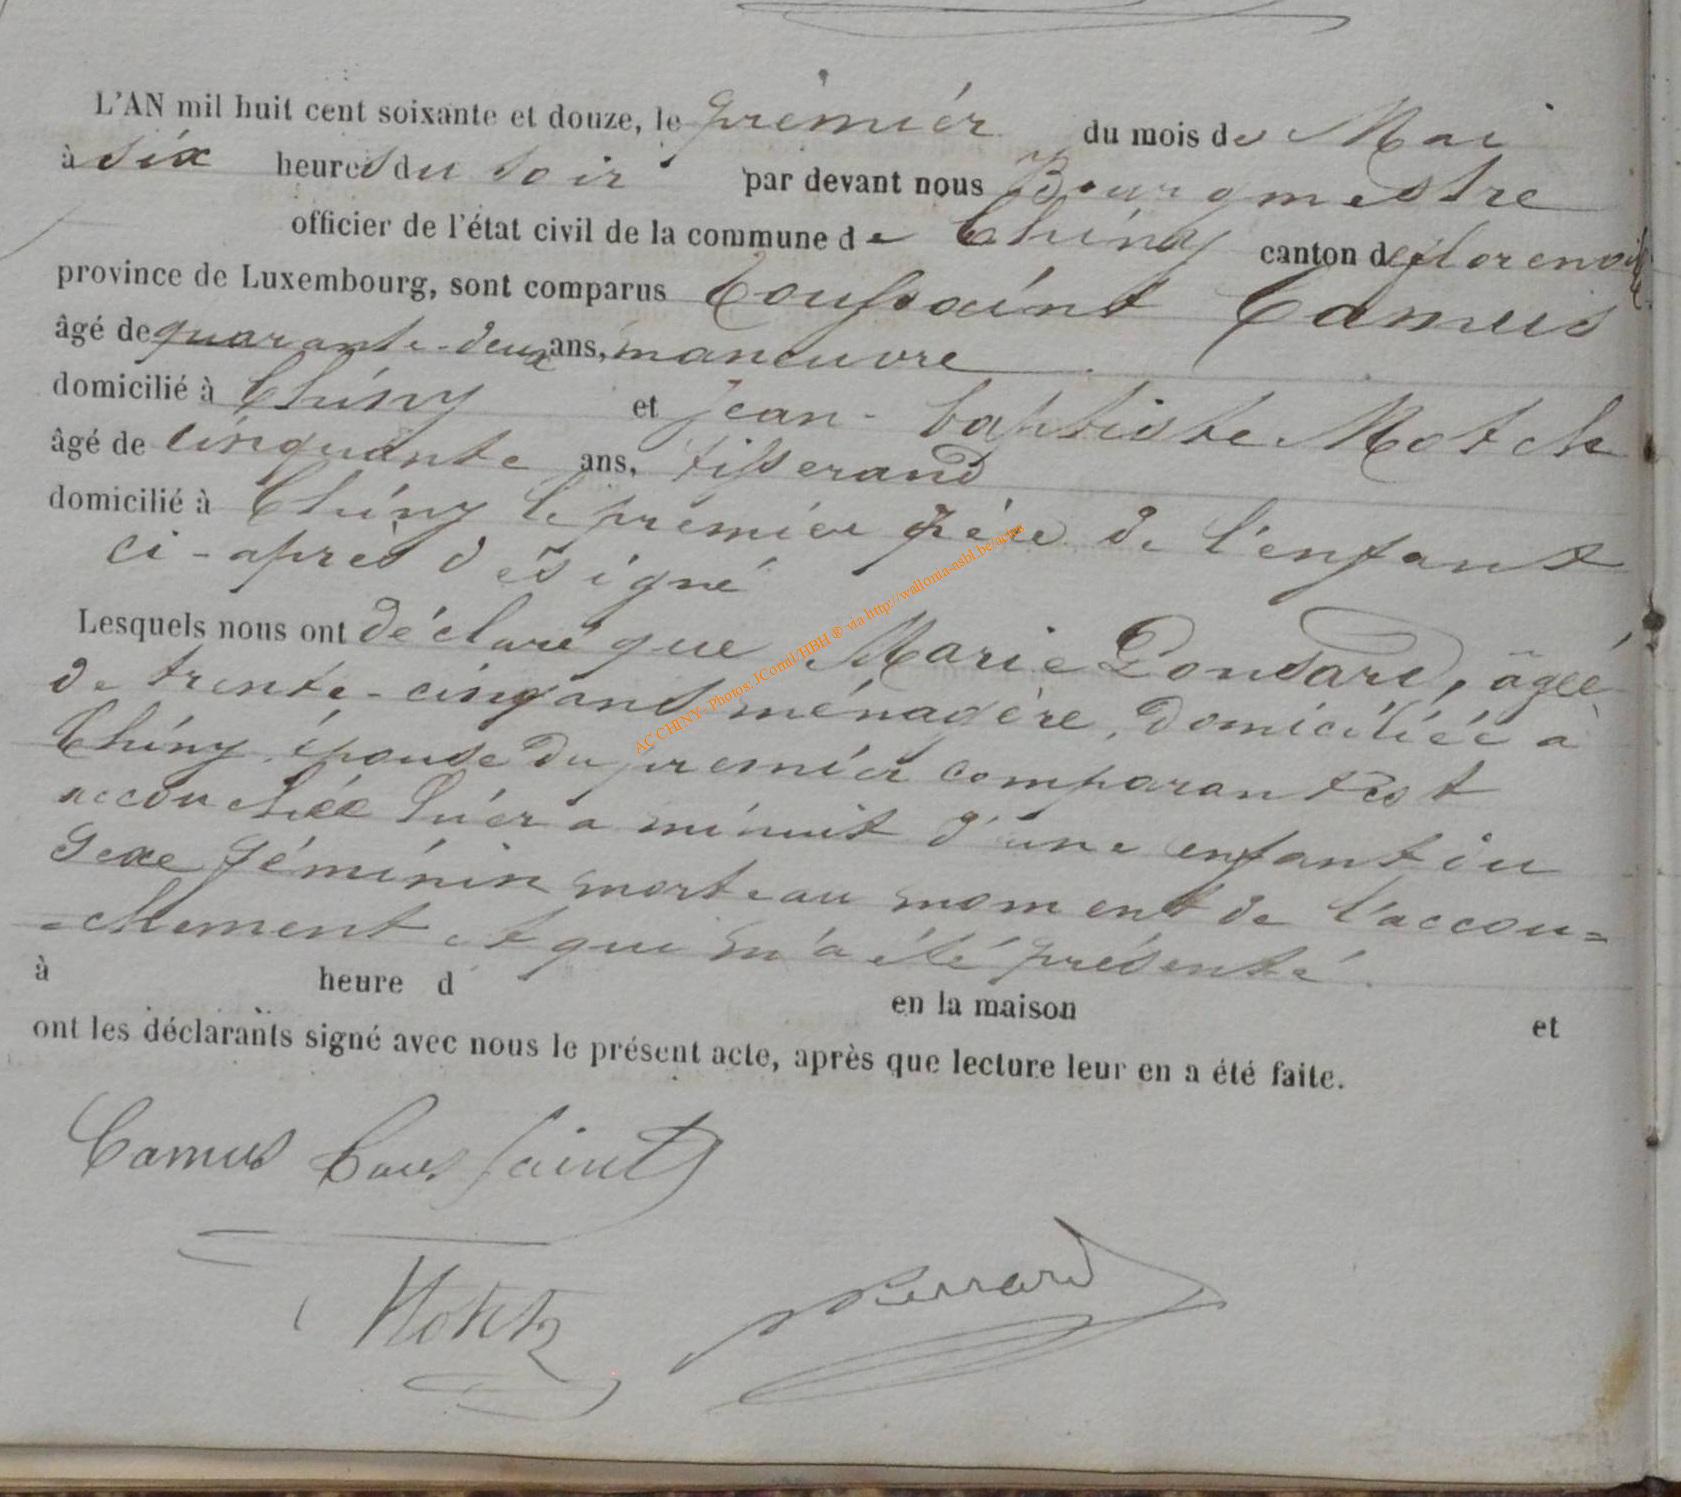 L'AN mil huit cent soixante et douze, le premier du mois de Mai
à six heures du soir par devant nous Bourgmestre
officier de l'état civil de la commune de Chiny canton de florenville
province de Luxembourg, sont comparus Toussaint Camus
âgé de quarante-deux ans, manœuvre
domicilié à Chiny et Jean-baptiste Motch
âgé de cinquante ans, tisserand
domicilié à Chiny le premier père de l'enfant
ci-après désigné
Lesquels nous ont déclaré que Marie Ponsard, agée
de trente-cinq ans ménagère, domiciliée à
Chiny, épouse du premier comparant est
accouchée hier a minuit d'une enfant du
sexe féminin morte au moment de l'accou=
=chement et qui m'a été présenté
à heure d en la maison et
ont les déclarants signé avec nous le présent acte, après que lecture leur en a été faite.
Camus Toussaint
AC CHINY - Photos: JComil HBH ® via http://wallonia-asbl.be/actes